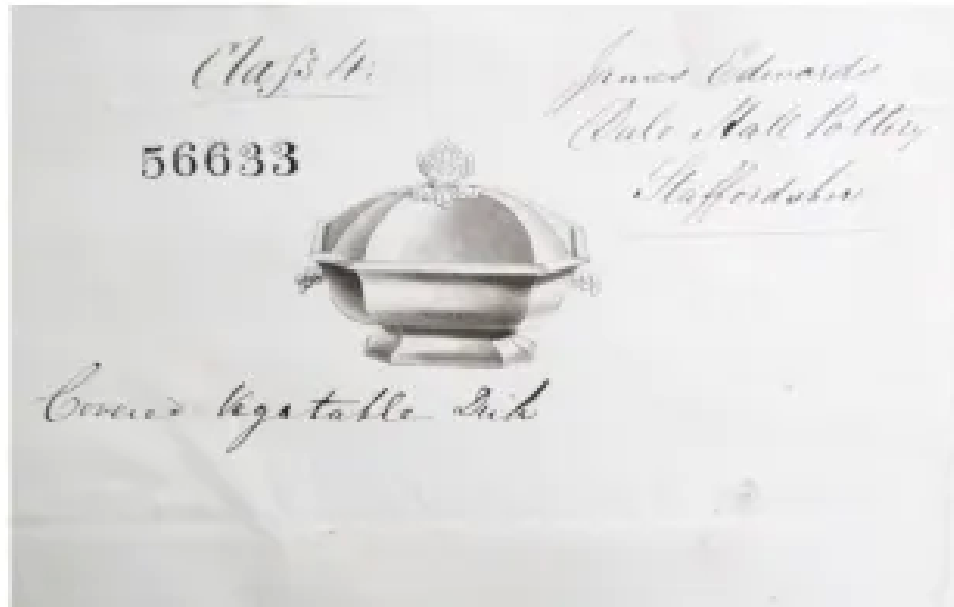 Class 4:
James Edwards
Dale Hall Pottery
Staffordshire
56633
Covered Vegetable Dish